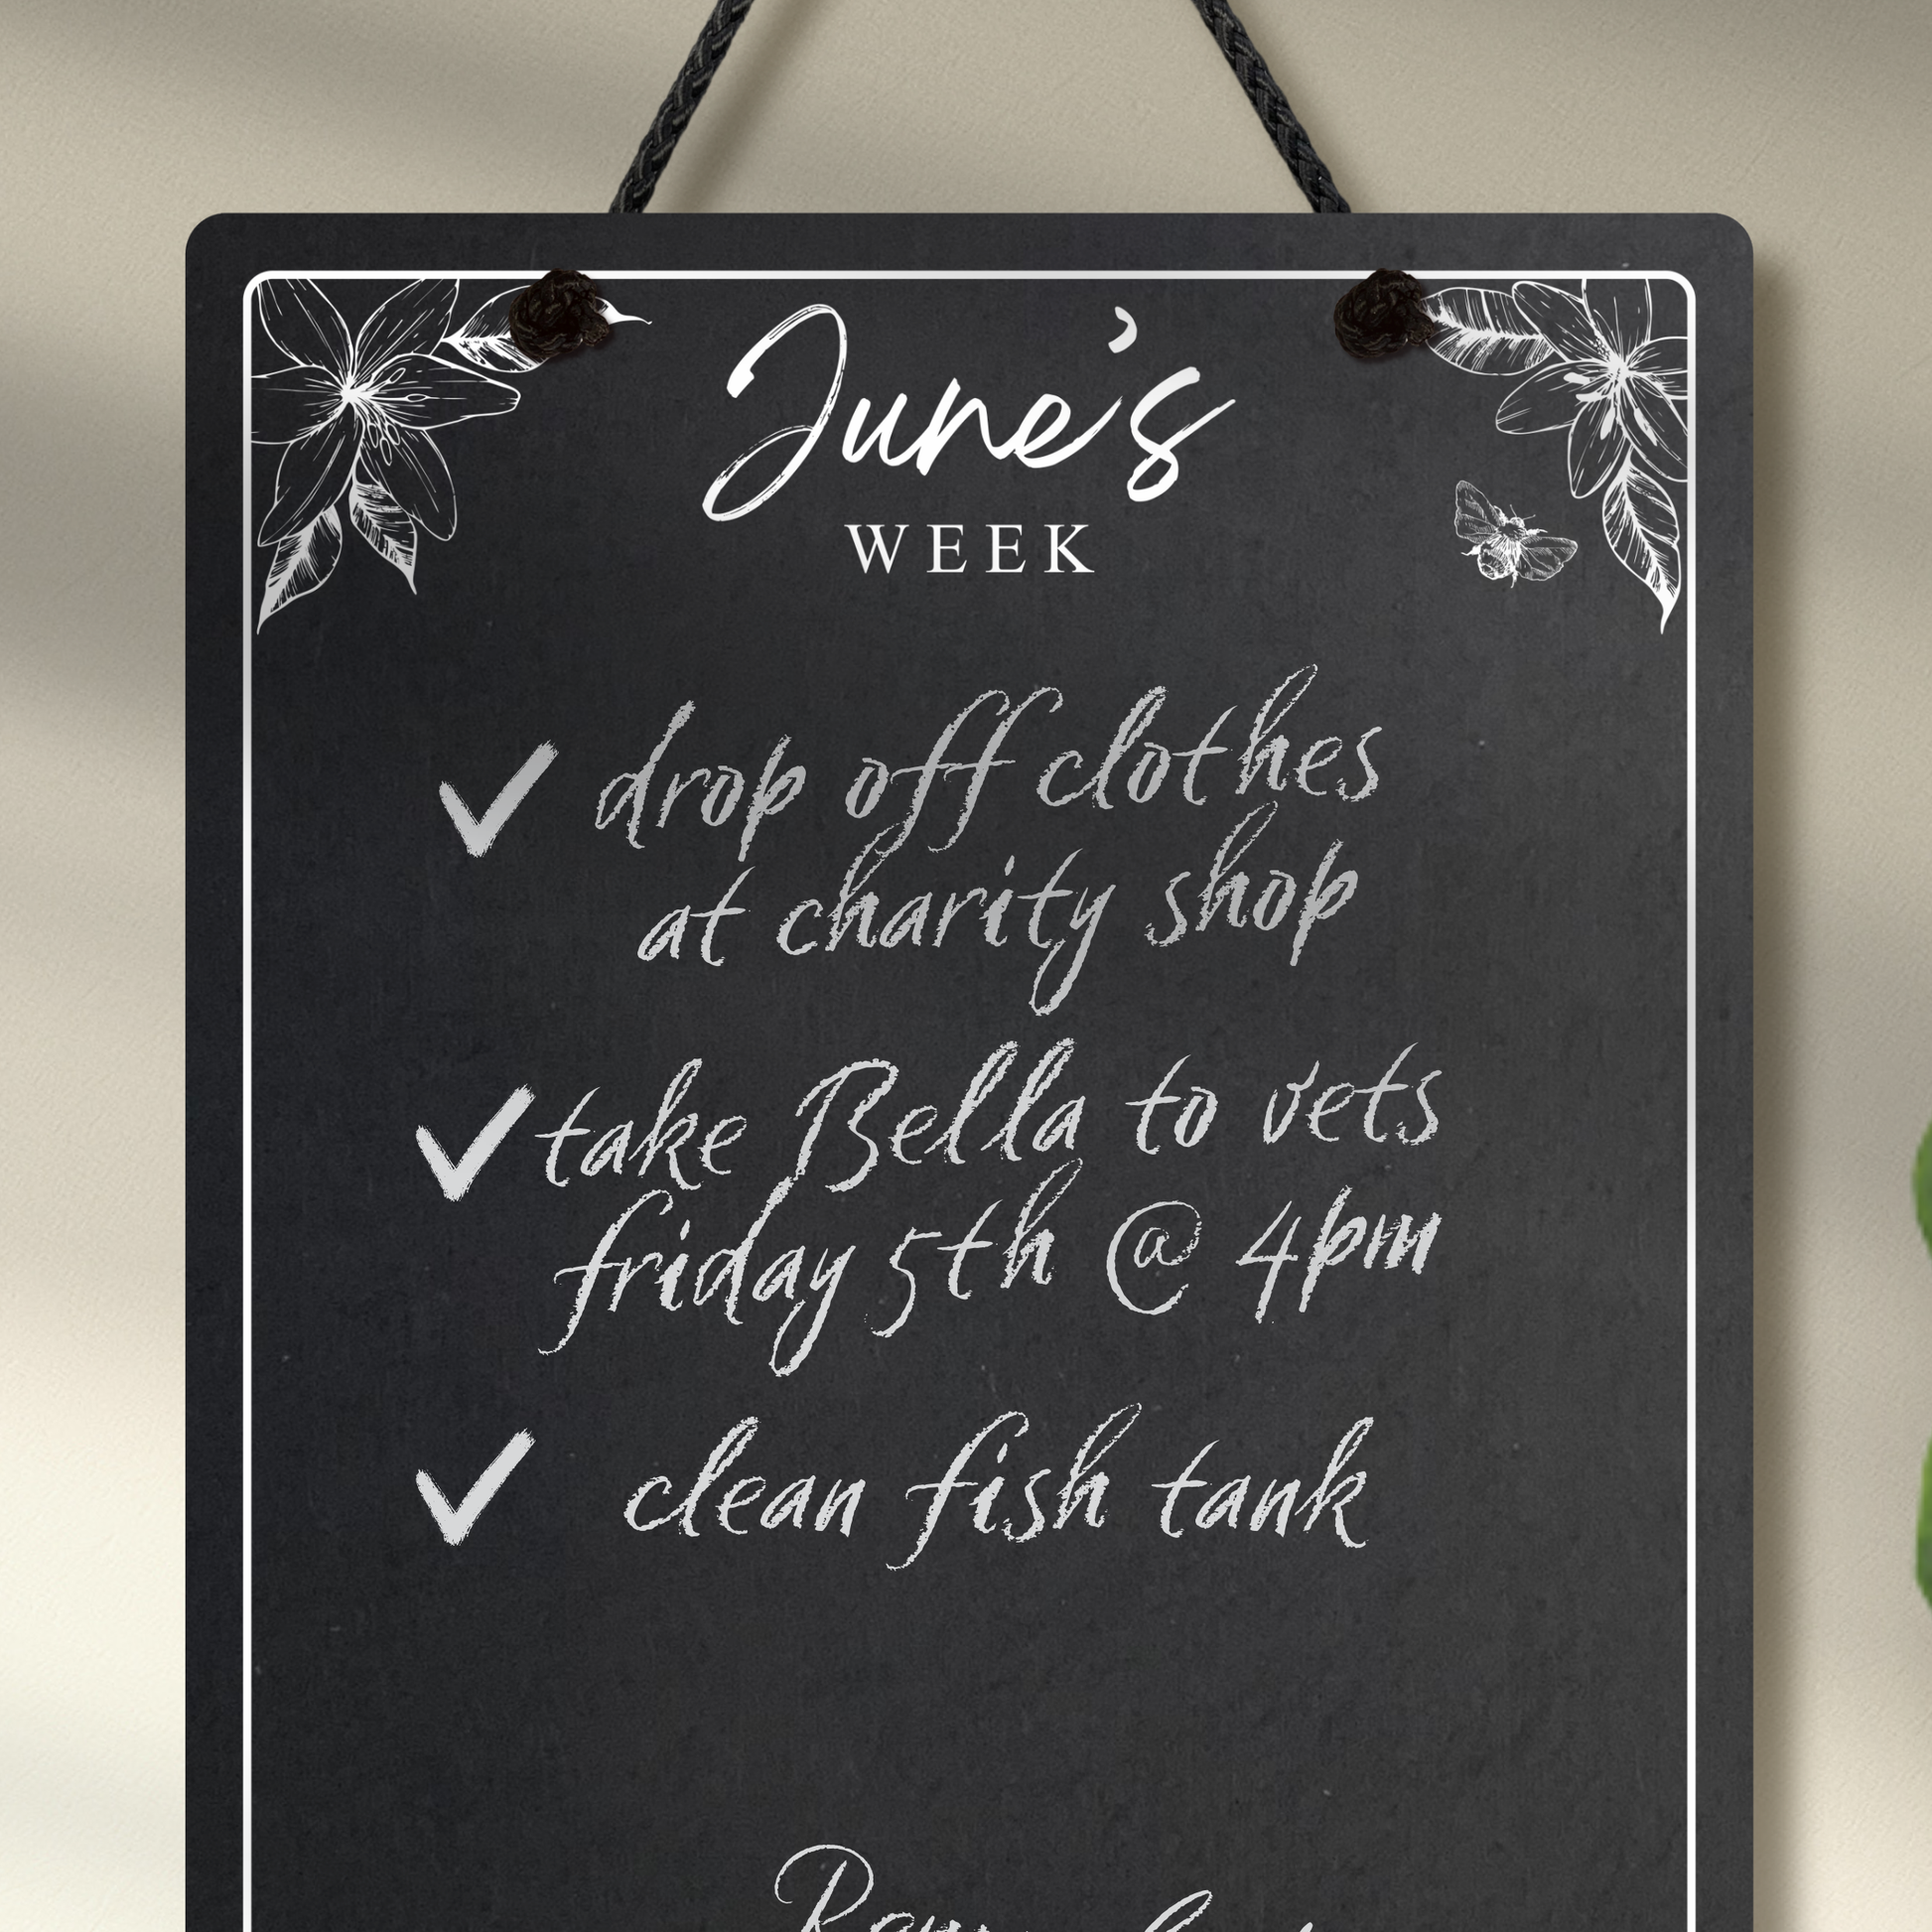 June's
WEEK
✓ drop off clothes
at charity shop
✓ take Bella to vets
friday 5th @ 4pm
✓ clean fish tank